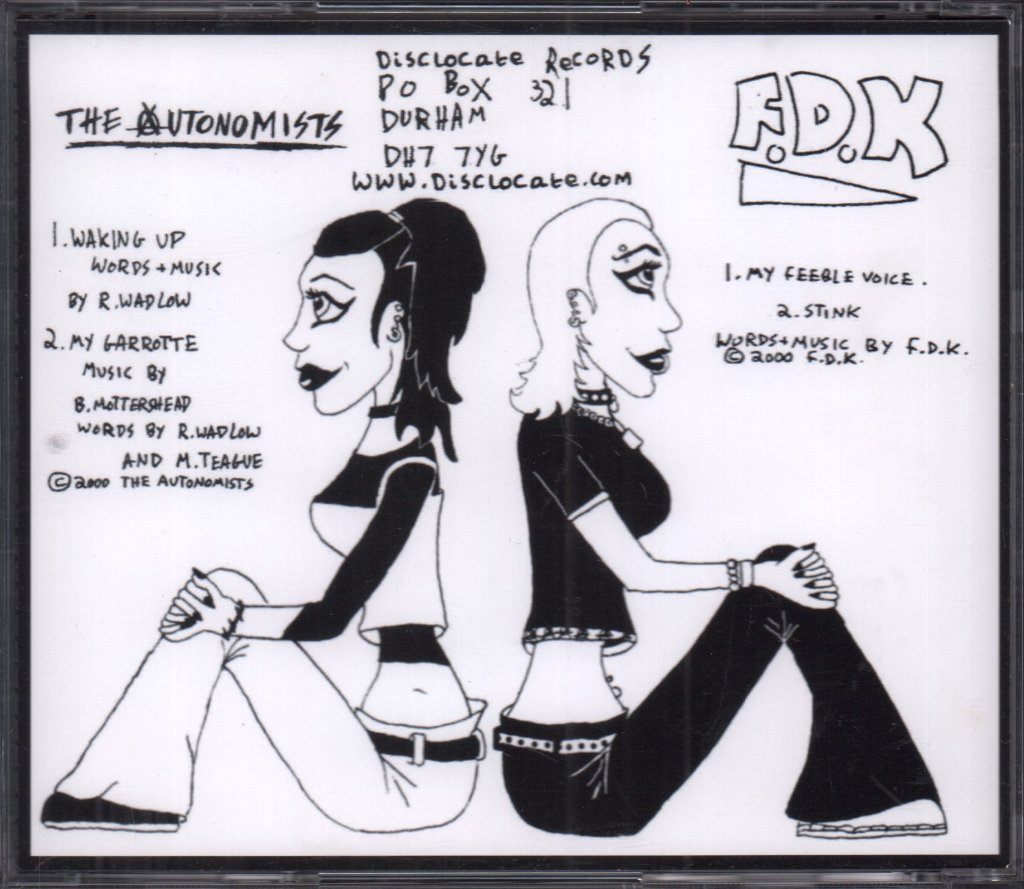 Disclocate Records
PO Box 321
DURHAM
DH7 7YG
www.Disclocate.com
THE AUTONOMISTS
1. WAKING UP
WORDS + MUSIC
BY R. WADLOW
2. MY GARROTTE
MUSIC BY
B. MOTTERSHEAD
WORDS BY R. WADLOW
AND M. TEAGUE
© 2000 THE AUTONOMISTS
F.D.K
1. MY FEEBLE VOICE.
2. STINK
WORDS + MUSIC BY F.D.K.
© 2000 F.D.K.